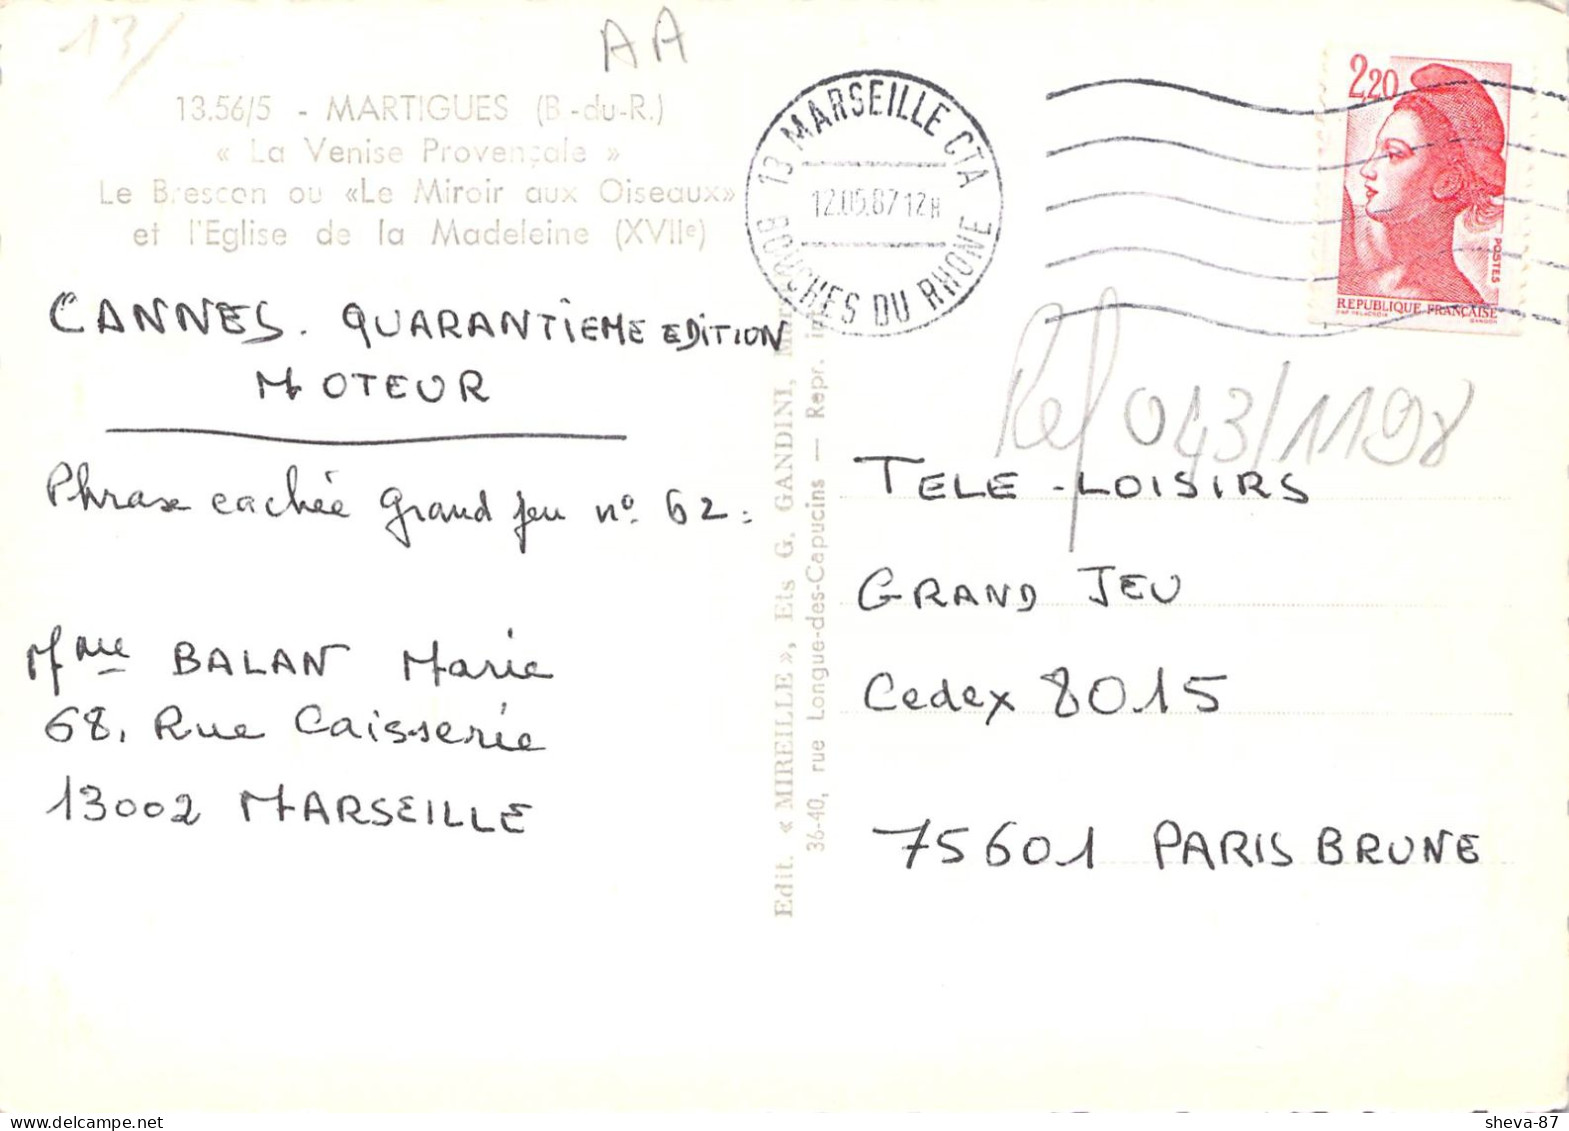 13/
AA
13.56/5 - MARTIGUES (B.-du-R.)
« La Venise Provençale »
Le Brescon ou «Le Miroir aux Oiseaux»
et l'Eglise de la Madeleine (XVIIe)
CANNES. QUARANTIEME EDITION
MOTEUR
Phrase cachée Grand jeu n° 62 :
Mme BALAN Marie
68, Rue Caisserie
13002 MARSEILLE
Edit. « MIREILLE », Ets G. GANDINI,
36-40, rue Longue-des-Capucins — Repr.
13 MARSEILLE CTA
12.05.87 12H
BOUCHES DU RHONE
2,20
POSTES
REPUBLIQUE FRANÇAISE
GANDON
Ref 043/1198
TELE-LOISIRS
GRAND JEU
Cedex 8015
75601 PARIS BRUNE
sheva-87